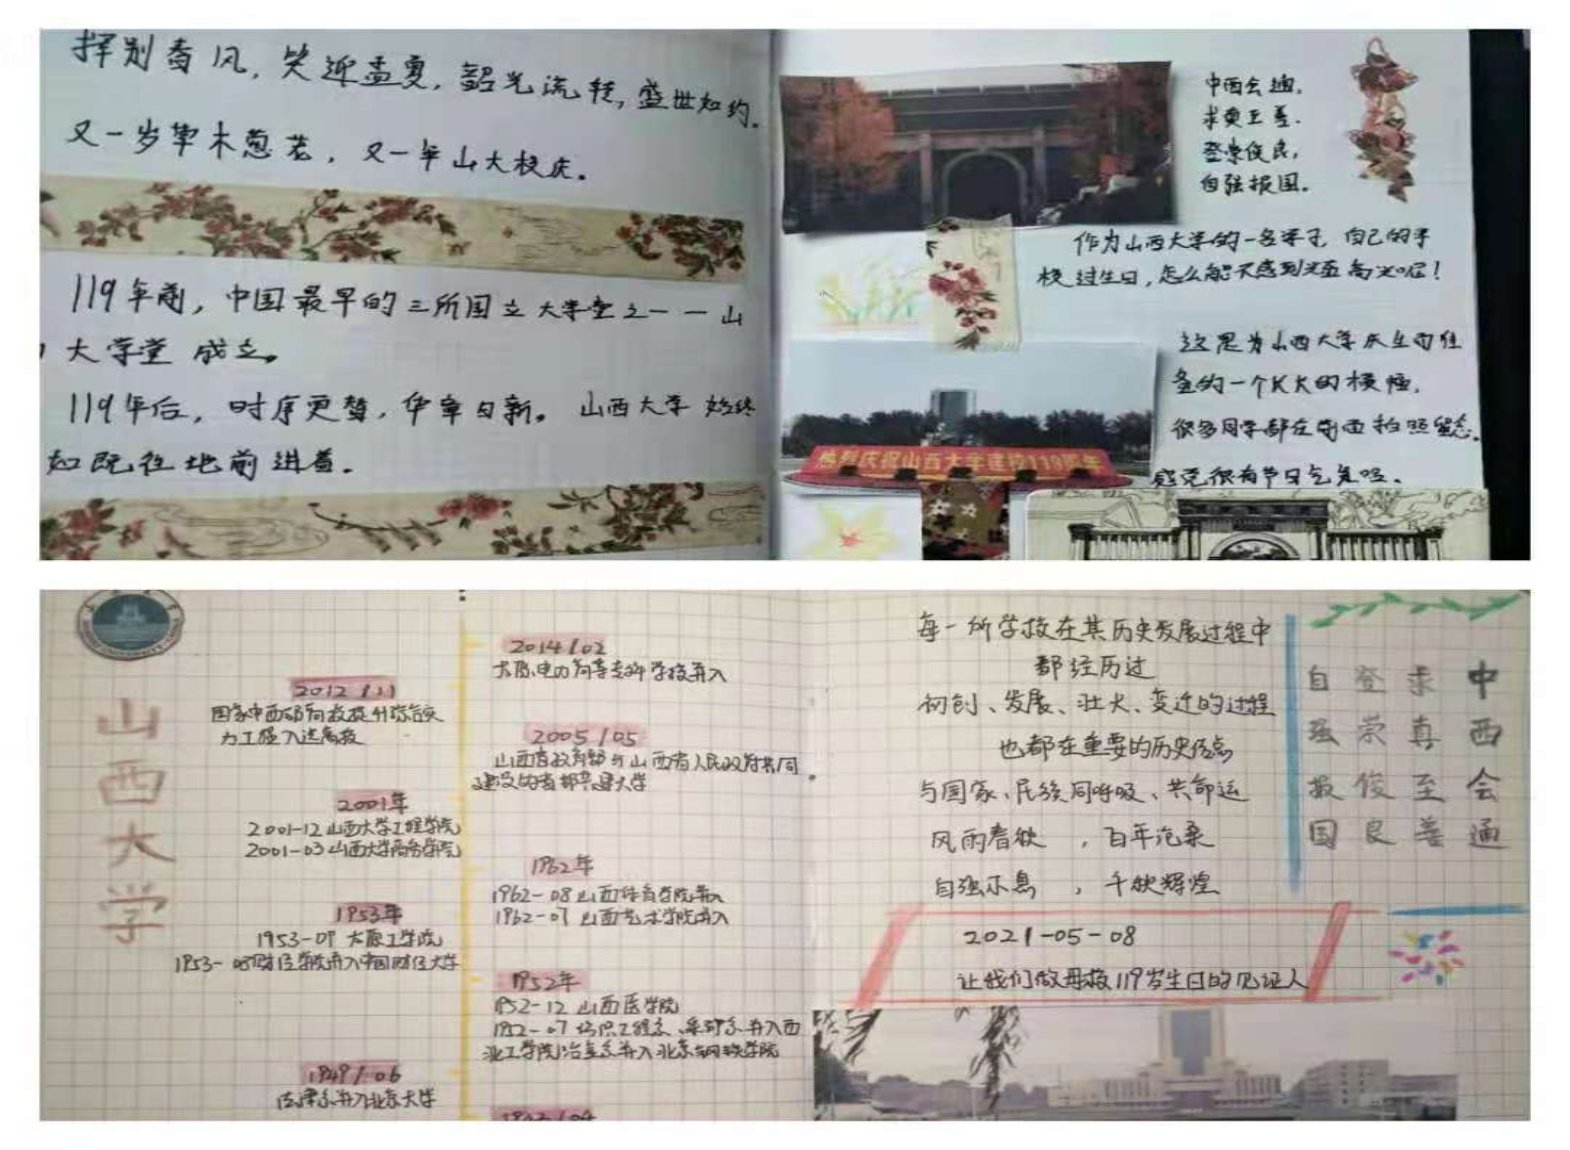 挥别春风,笑迎孟夏,韶光流转,盛世如约。
又一岁草木葱茏,又一年山大校庆。
119年前,中国最早的三所国立大学堂之一一山
大学堂 成立。
119年后,时序更替,华章日新。山西大学 始终
如既往地前进着。
中西会通,
求真至善.
登崇俊良,
自强报国。
作为山西大学的一名学子,自己的学
校过生日,怎么能不感到 呢!
这是为山西大学庆生而准
备的一个KK的横幅,
很多同学都在前面拍照留念.
感觉很有节日气氛呀.
热烈庆祝山西大学建校119周年
山西大学
2014/02
太原电力高等专科学校并入
2012/11
国家中西部高校提升综合实
力工程入选高校
2005/05
山西省教育部与山西省人民政府共同
建设的省部共建大学
2001年
2001-12 山西大学工程学院
2001-03 山西大学商务学院
1962年
1962-08 山西体育学院并入
1962-07 山西艺术学院并入
1953年
1953-09 太原工学院
1953-08财经学院并入中国财经大学
1952年
1952-12 山西医学院
1952-07 工程系、采矿系并入西
北工学院冶金系并入北京钢铁学院
1949/06
法律系并入北京大学
每一所学校在其历史发展过程中
都经历过
初创、发展、壮大、变迁的过程
也都在重要的历史信息
与国家、民族同呼吸、共命运
风雨春秋 ,百年沧桑
自强不息 ,千秋辉煌
2021-05-08
让我们做母校119岁生日的见证人
中西会通
求真至善
登崇俊良
自强报国